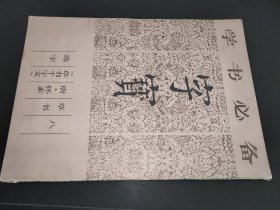 学书必备
字宝
八
草书
唐·怀素
《草书千字文》
选字